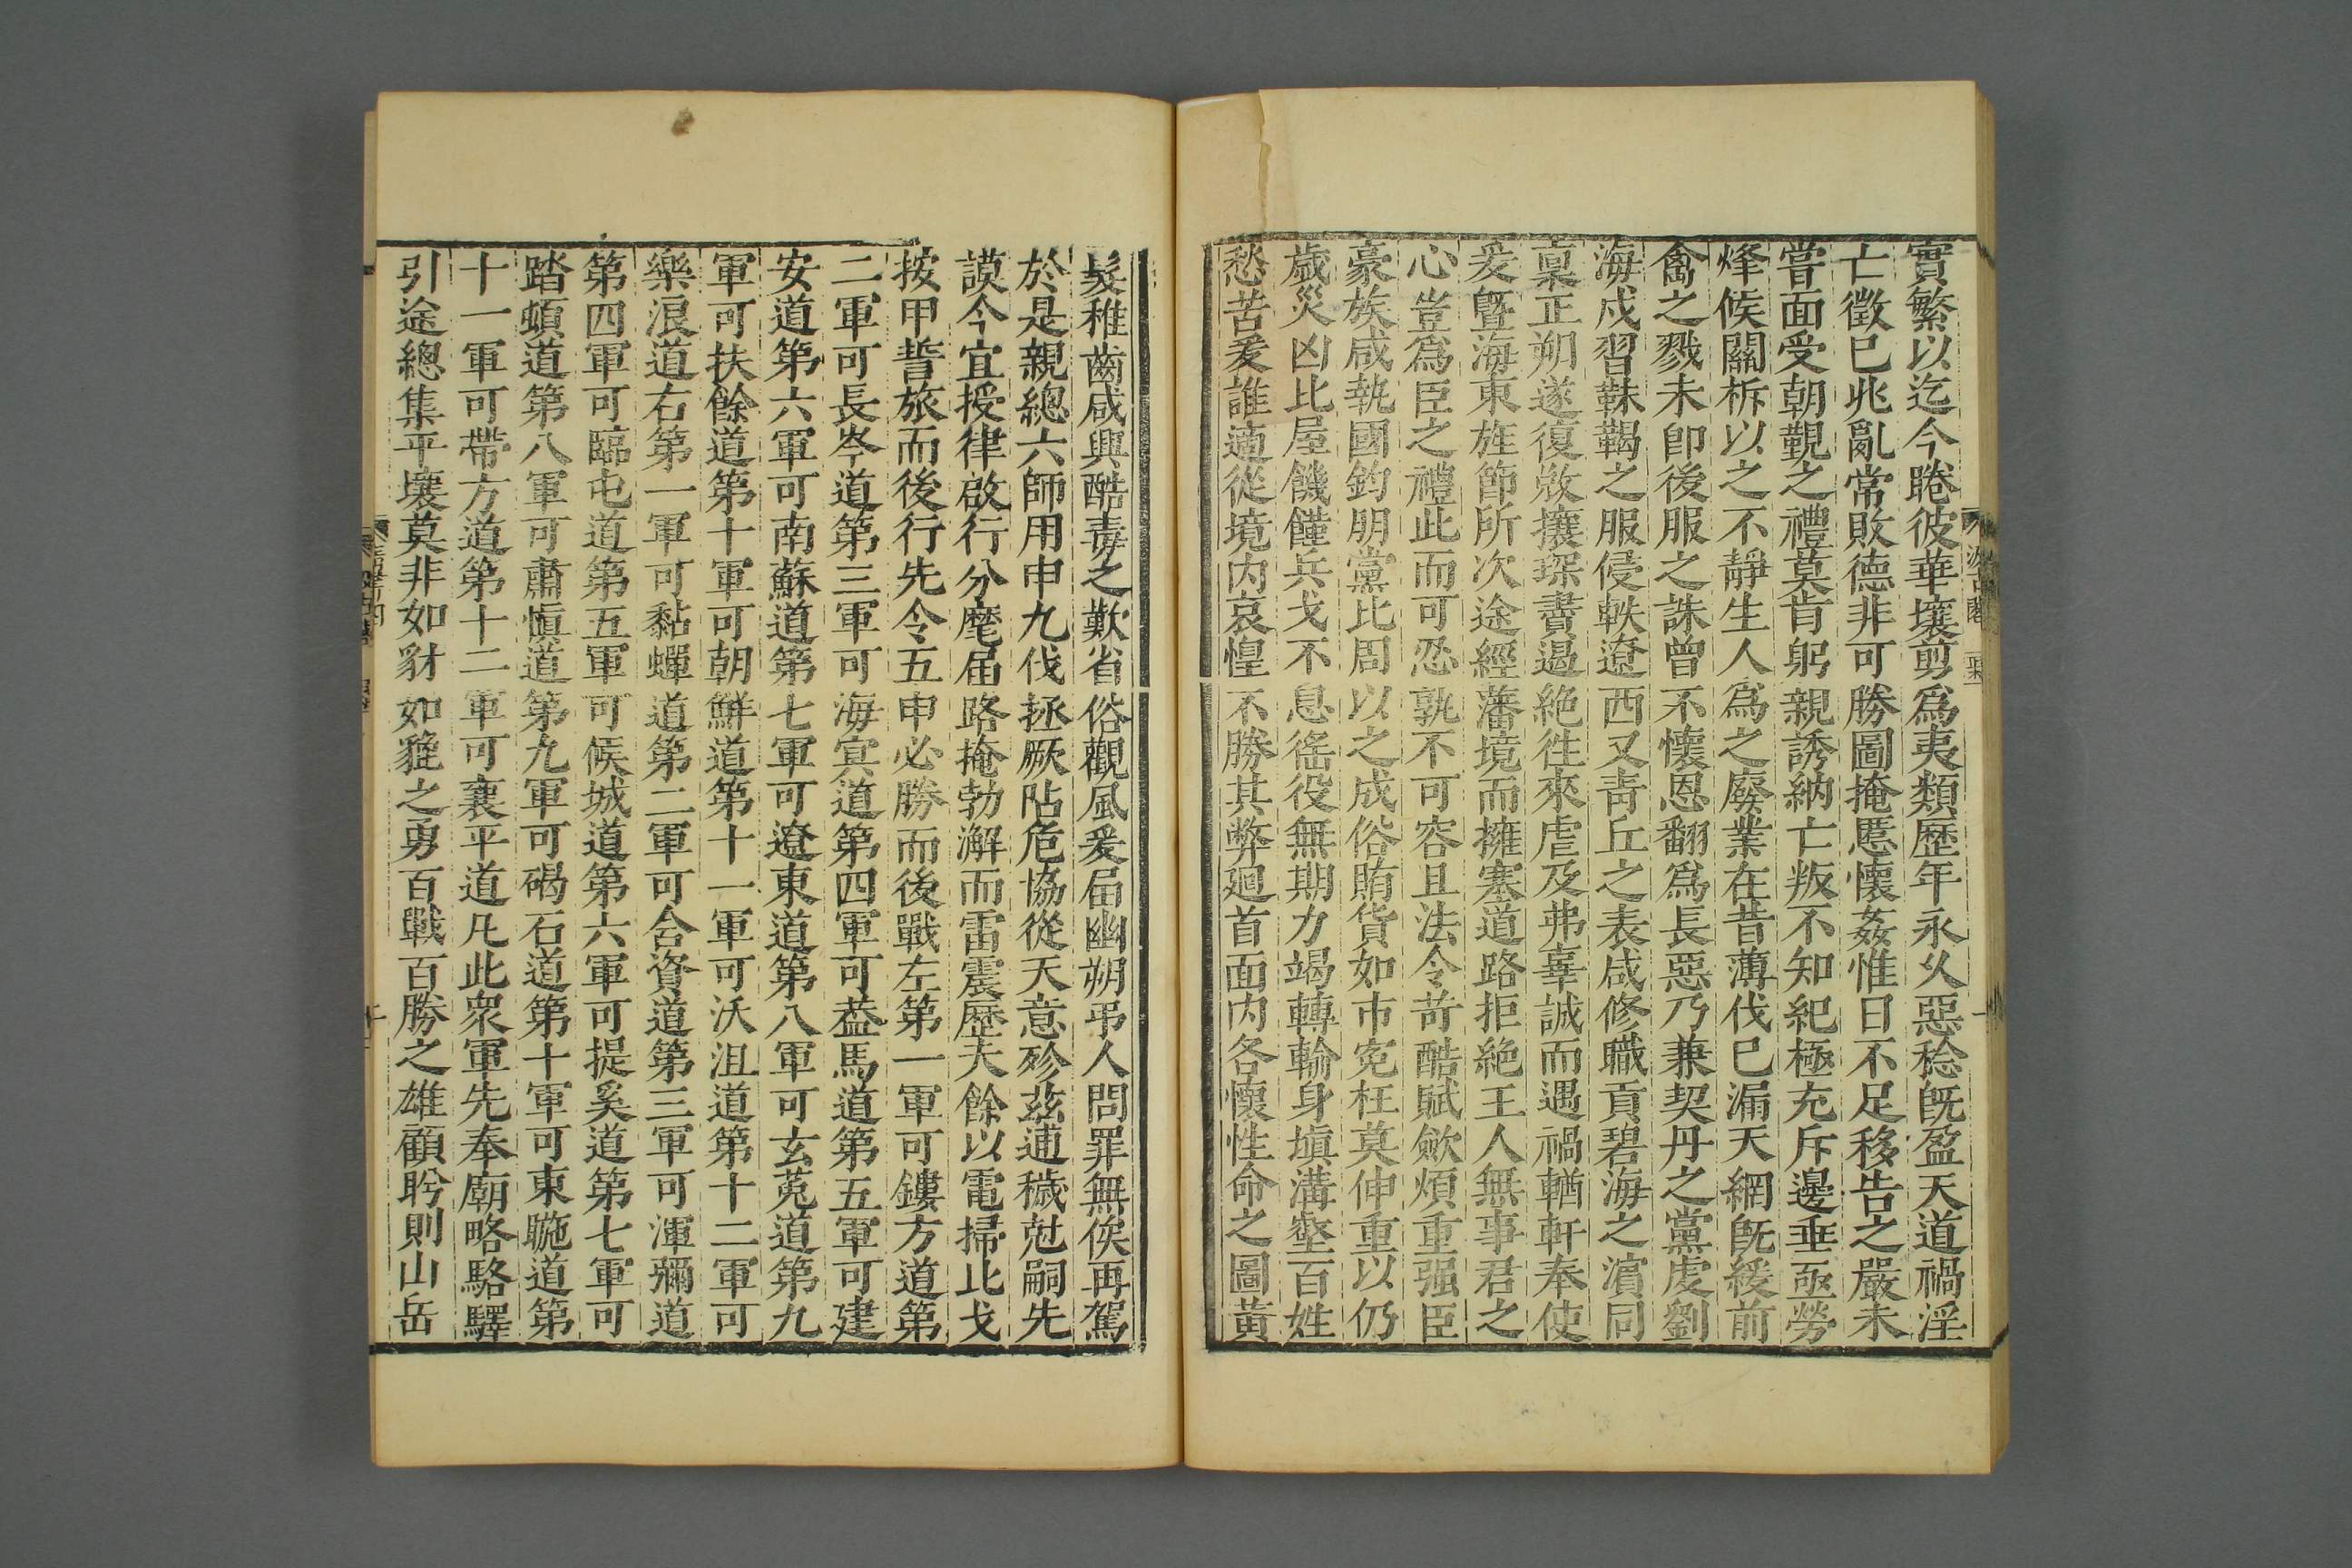 實繁以迄今睠彼華壤剪爲夷類歷年永久惡稔旣盈天道禍淫
亡徵已兆亂常敗德非可勝圖掩慝懷姦惟日不足移告之嚴未
嘗面受朝覲之禮莫肯躬親誘納亡叛不知紀極充斥邊垂亟勞
烽候關柝以之不靜生人爲之廢業在昔薄伐已漏天網旣緩前
禽之戮未卽後服之誅曾不懷恩翻爲長惡乃兼契丹之黨虔劉
海戍習靺鞨之服侵軼遼西又靑丘之表咸修職貢碧海之濵同
禀正朔遂復敓攘琛賮遏絶徃來虐及弗辜誠而遇禍輶軒奉使
爰曁海東旌節所次途經藩境而擁塞道路拒絶王人無事君之
心豈爲臣之禮此而可忍孰不可容且法令苛酷賦斂煩重强臣
豪族咸執國鈞朋黨比周以之成俗賄貨如市寃枉莫伸重以仍
歲災凶比屋饑饉兵戈不息徭役無期力竭轉輸身塡溝壑百姓
愁苦爰誰適從境內哀惶不勝其弊廻首面內各懷性命之圖黃
髮稚齒咸興酷毒之歎省俗觀風爰届幽朔弔人問罪無俟再駕
於是親總六師用申九伐拯厥阽危協從天意殄玆逋穢尅嗣先
謨今宜授律啟行分麾届路掩勃澥而雷震歷夫餘以電掃比戈
按甲誓旅而後行先令五申必勝而後戰左第一軍可鏤方道第
二軍可長岑道第三軍可海㝠道第四軍可葢馬道第五軍可建
安道第六軍可南蘇道第七軍可遼東道第八軍可玄菟道第九
軍可扶餘道第十軍可朝鮮道第十一軍可沃沮道第十二軍可
樂浪道右第一軍可黏蟬道第二軍可含資道第三軍可渾彌道
第四軍可臨屯道第五軍可候城道第六軍可提奚道第七軍可
踏頓道第八軍可肅愼道第九軍可碣石道第十軍可東暆道第
十一軍可帶方道第十二軍可襄平道凡此衆軍先奉廟略駱驛
引途總集平壤莫非如豺如貔之勇百戰百勝之雄顧眄則山岳